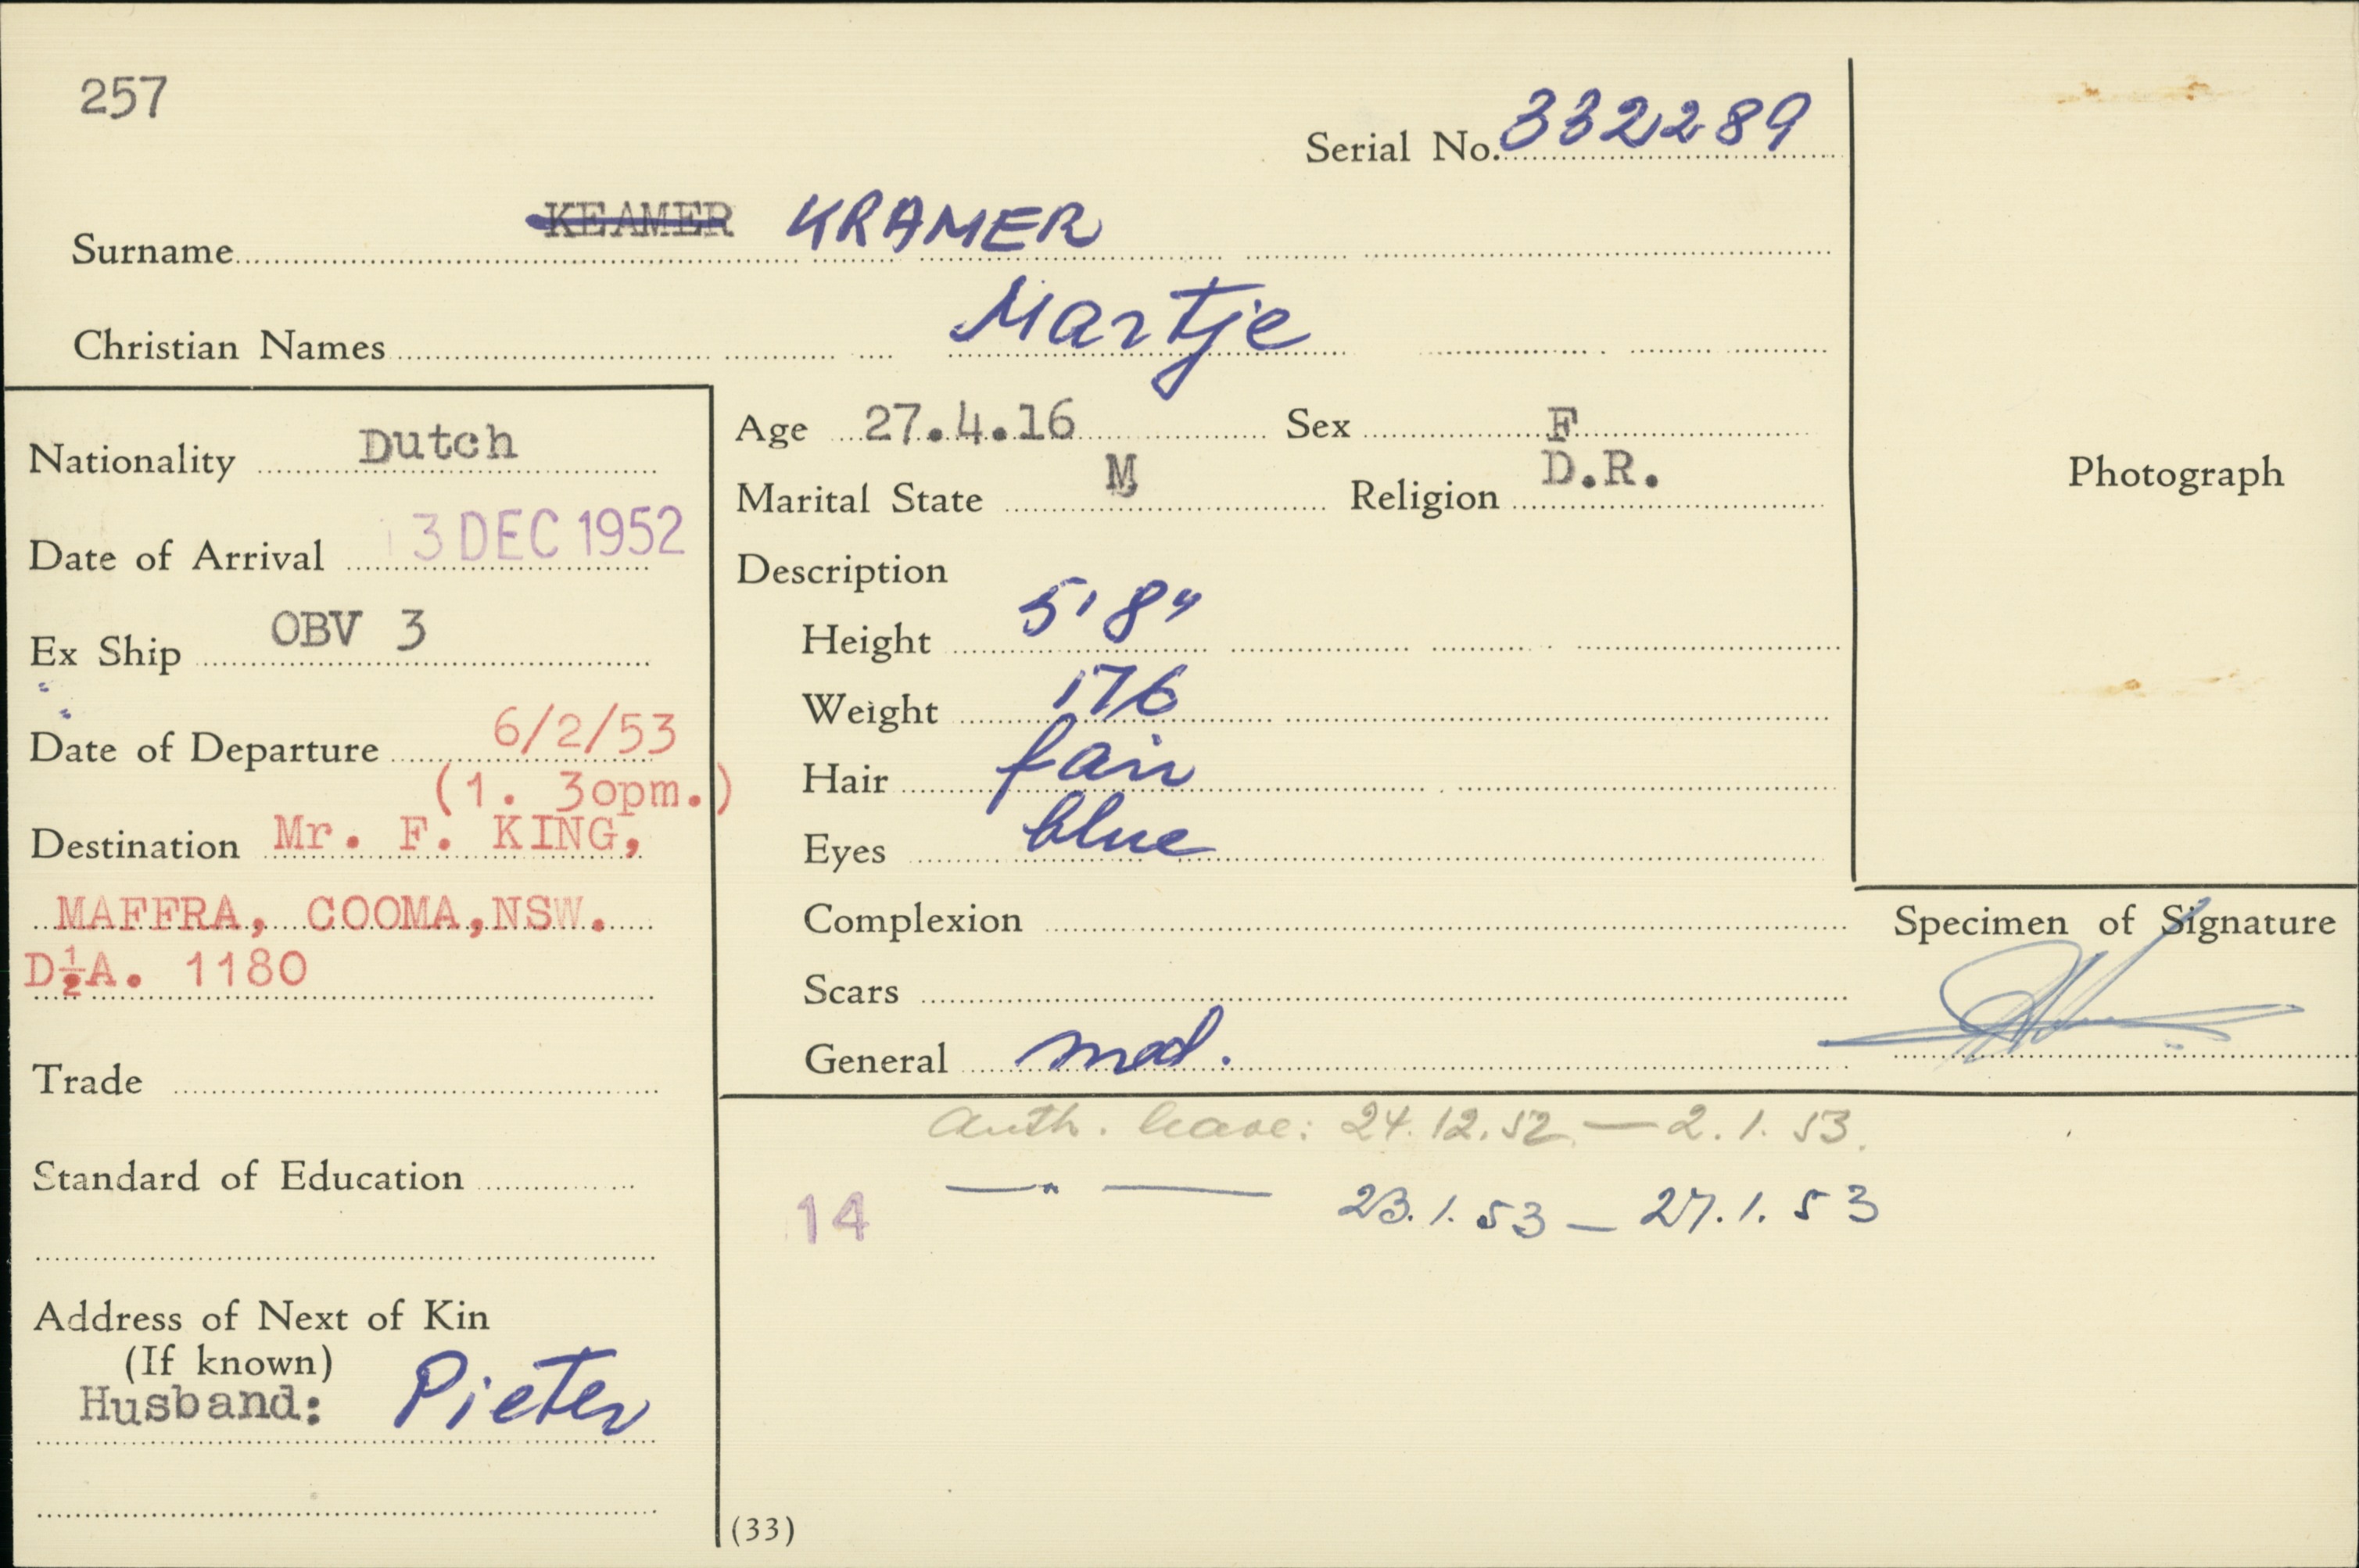 257
Serial No. 332289
Surname KEAMER KRAMER
Christian Names Martje
Nationality Dutch
Date of Arrival 3 DEC 1952
Ex Ship OBV 3
Date of Departure 6/2/53
(1. 30pm.)
Destination Mr. F. KING,
MAFFRA, COOMA,NSW.
D½A. 1180
Trade
Standard of Education
Address of Next of Kin
(If known)
Husband: Pieter
Age 27.4.16 Sex F
Marital State M Religion D.R.
Description
Height 5'8"
Weight 176
Hair fair
Eyes blue
Complexion
Scars
General med.
Photograph
Specimen of Signature
Auth. leave: 24.12.52 — 2.1.53.
14 —"— 23.1.53 — 27.1.53
(33)